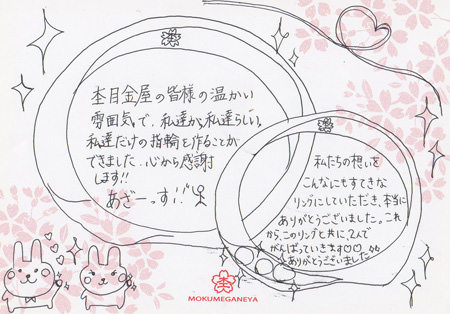 杢目金屋の皆様の温かい
雰囲気で、私達が私達らしい、
私達だけの指輪を作ることが
できました。心から感謝
します!!
あざーっす!!
私たちの想いを
こんなにもすてきな
リングにしていただき、本当に
ありがとうございました。これ
から、このリングと共に、2人で
がんばっていきます♡♡
ありがとうございました
MOKUMEGANEYA